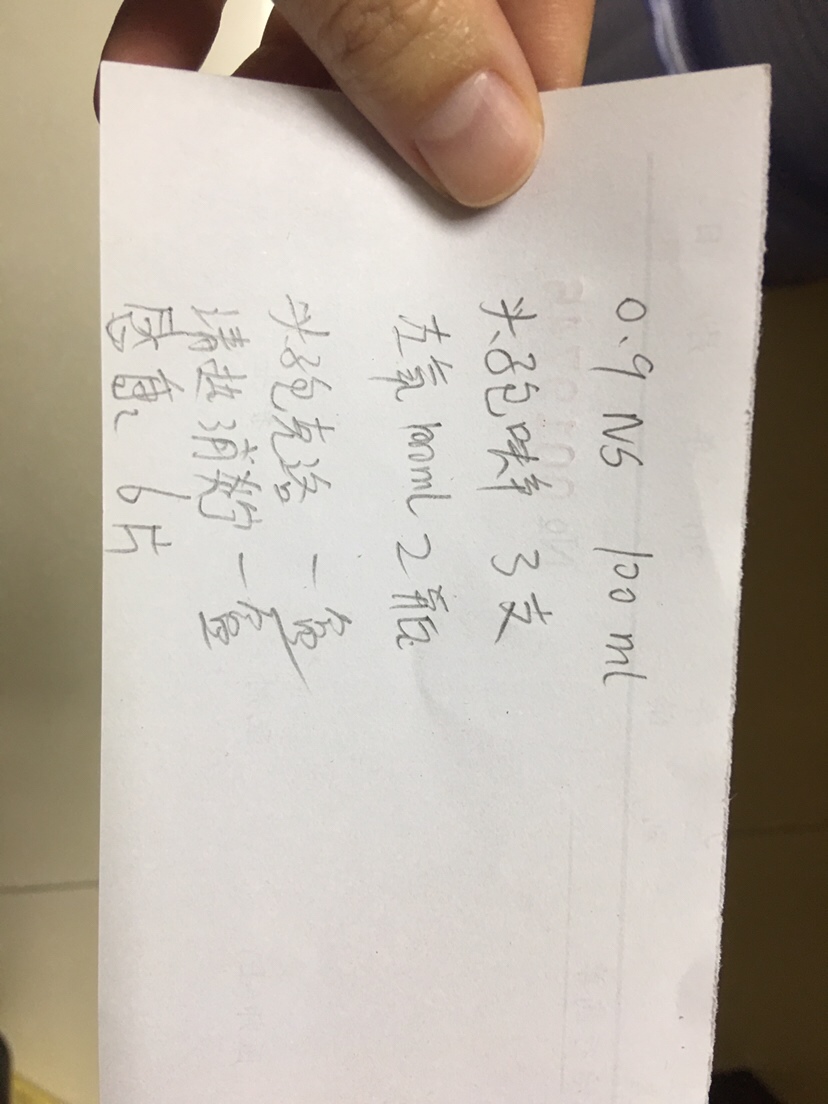 0.9 NS 100 ml
头孢呋辛 3支
左氧 100ml 2瓶
头孢克洛 一盒
清热消炎 一盒
感冒 6片